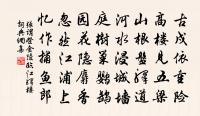 古戍依重險
高樓見五梁
山根盤驛道
河水浸城墻
庭樹巢鸚鵡
園花隱麝香
忽然江浦上
憶作捕魚郎
張謂登金陵臨江驛樓
詞典網集